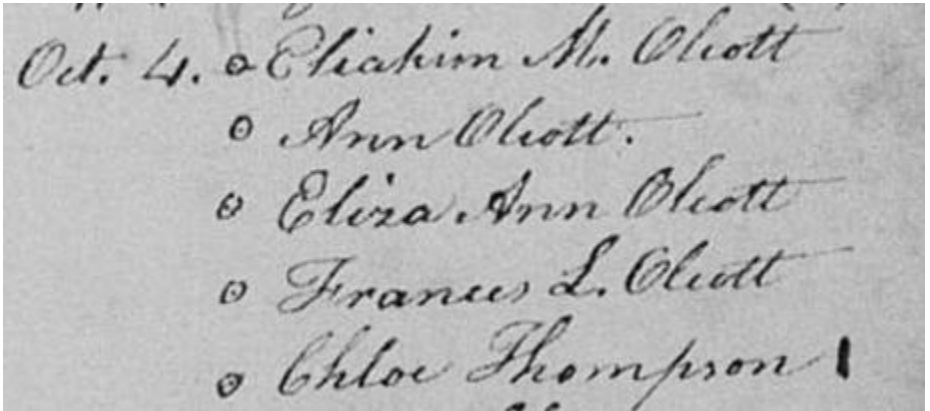 Oct. 4. Eliakim M. Olcott
Ann Olcott.
Eliza Ann Olcott
Frances L. Olcott
Chloe Thompson